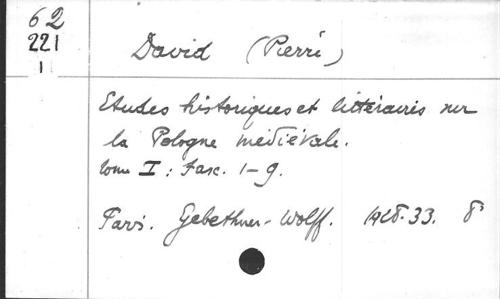 62
221
1
David (Pierre)
Etudes historiques et littéraires sur
la Pologne médiévale.
tome I: Fasc. 1-9.
Paris. Gebethner-Wolff. 1928-33. 8°